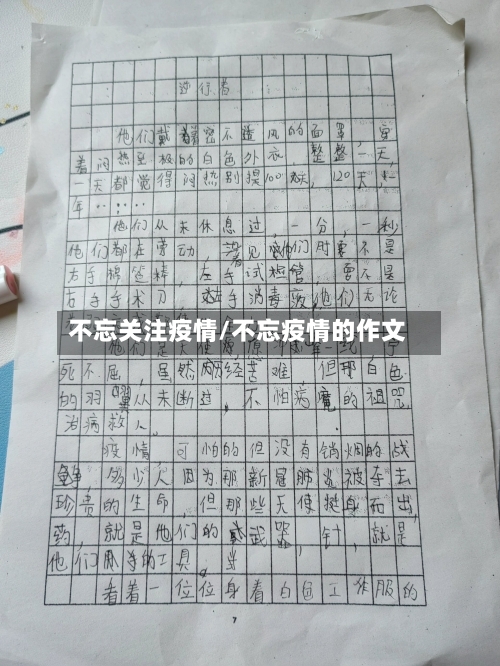 逆行者
他们戴着密不透风的面罩,穿
着闷热至极的白色外衣,整整一天,
一天都觉得闷热别提100天,120天,一
年……
他们从未休息过,一分,一秒
他们都在劳动,
右手棉签精,左手试管,要不是
右手手术刀,左手消毒液,他们无论
不忘关注疫情/不忘疫情的作文
死不屈,虽然历经苦难 但那白色
的羽翼从未断过,不怕病魔的祖咒,
治病救人。
疫情 可怕的但没有销烟的战
多少人因为那新冠肺炎被夺去
珍贵的生命,但那些天使挺身而出,
药,就是他们的武器,针,就是
他们的工具,
看着一位位身着白色工作服的
7